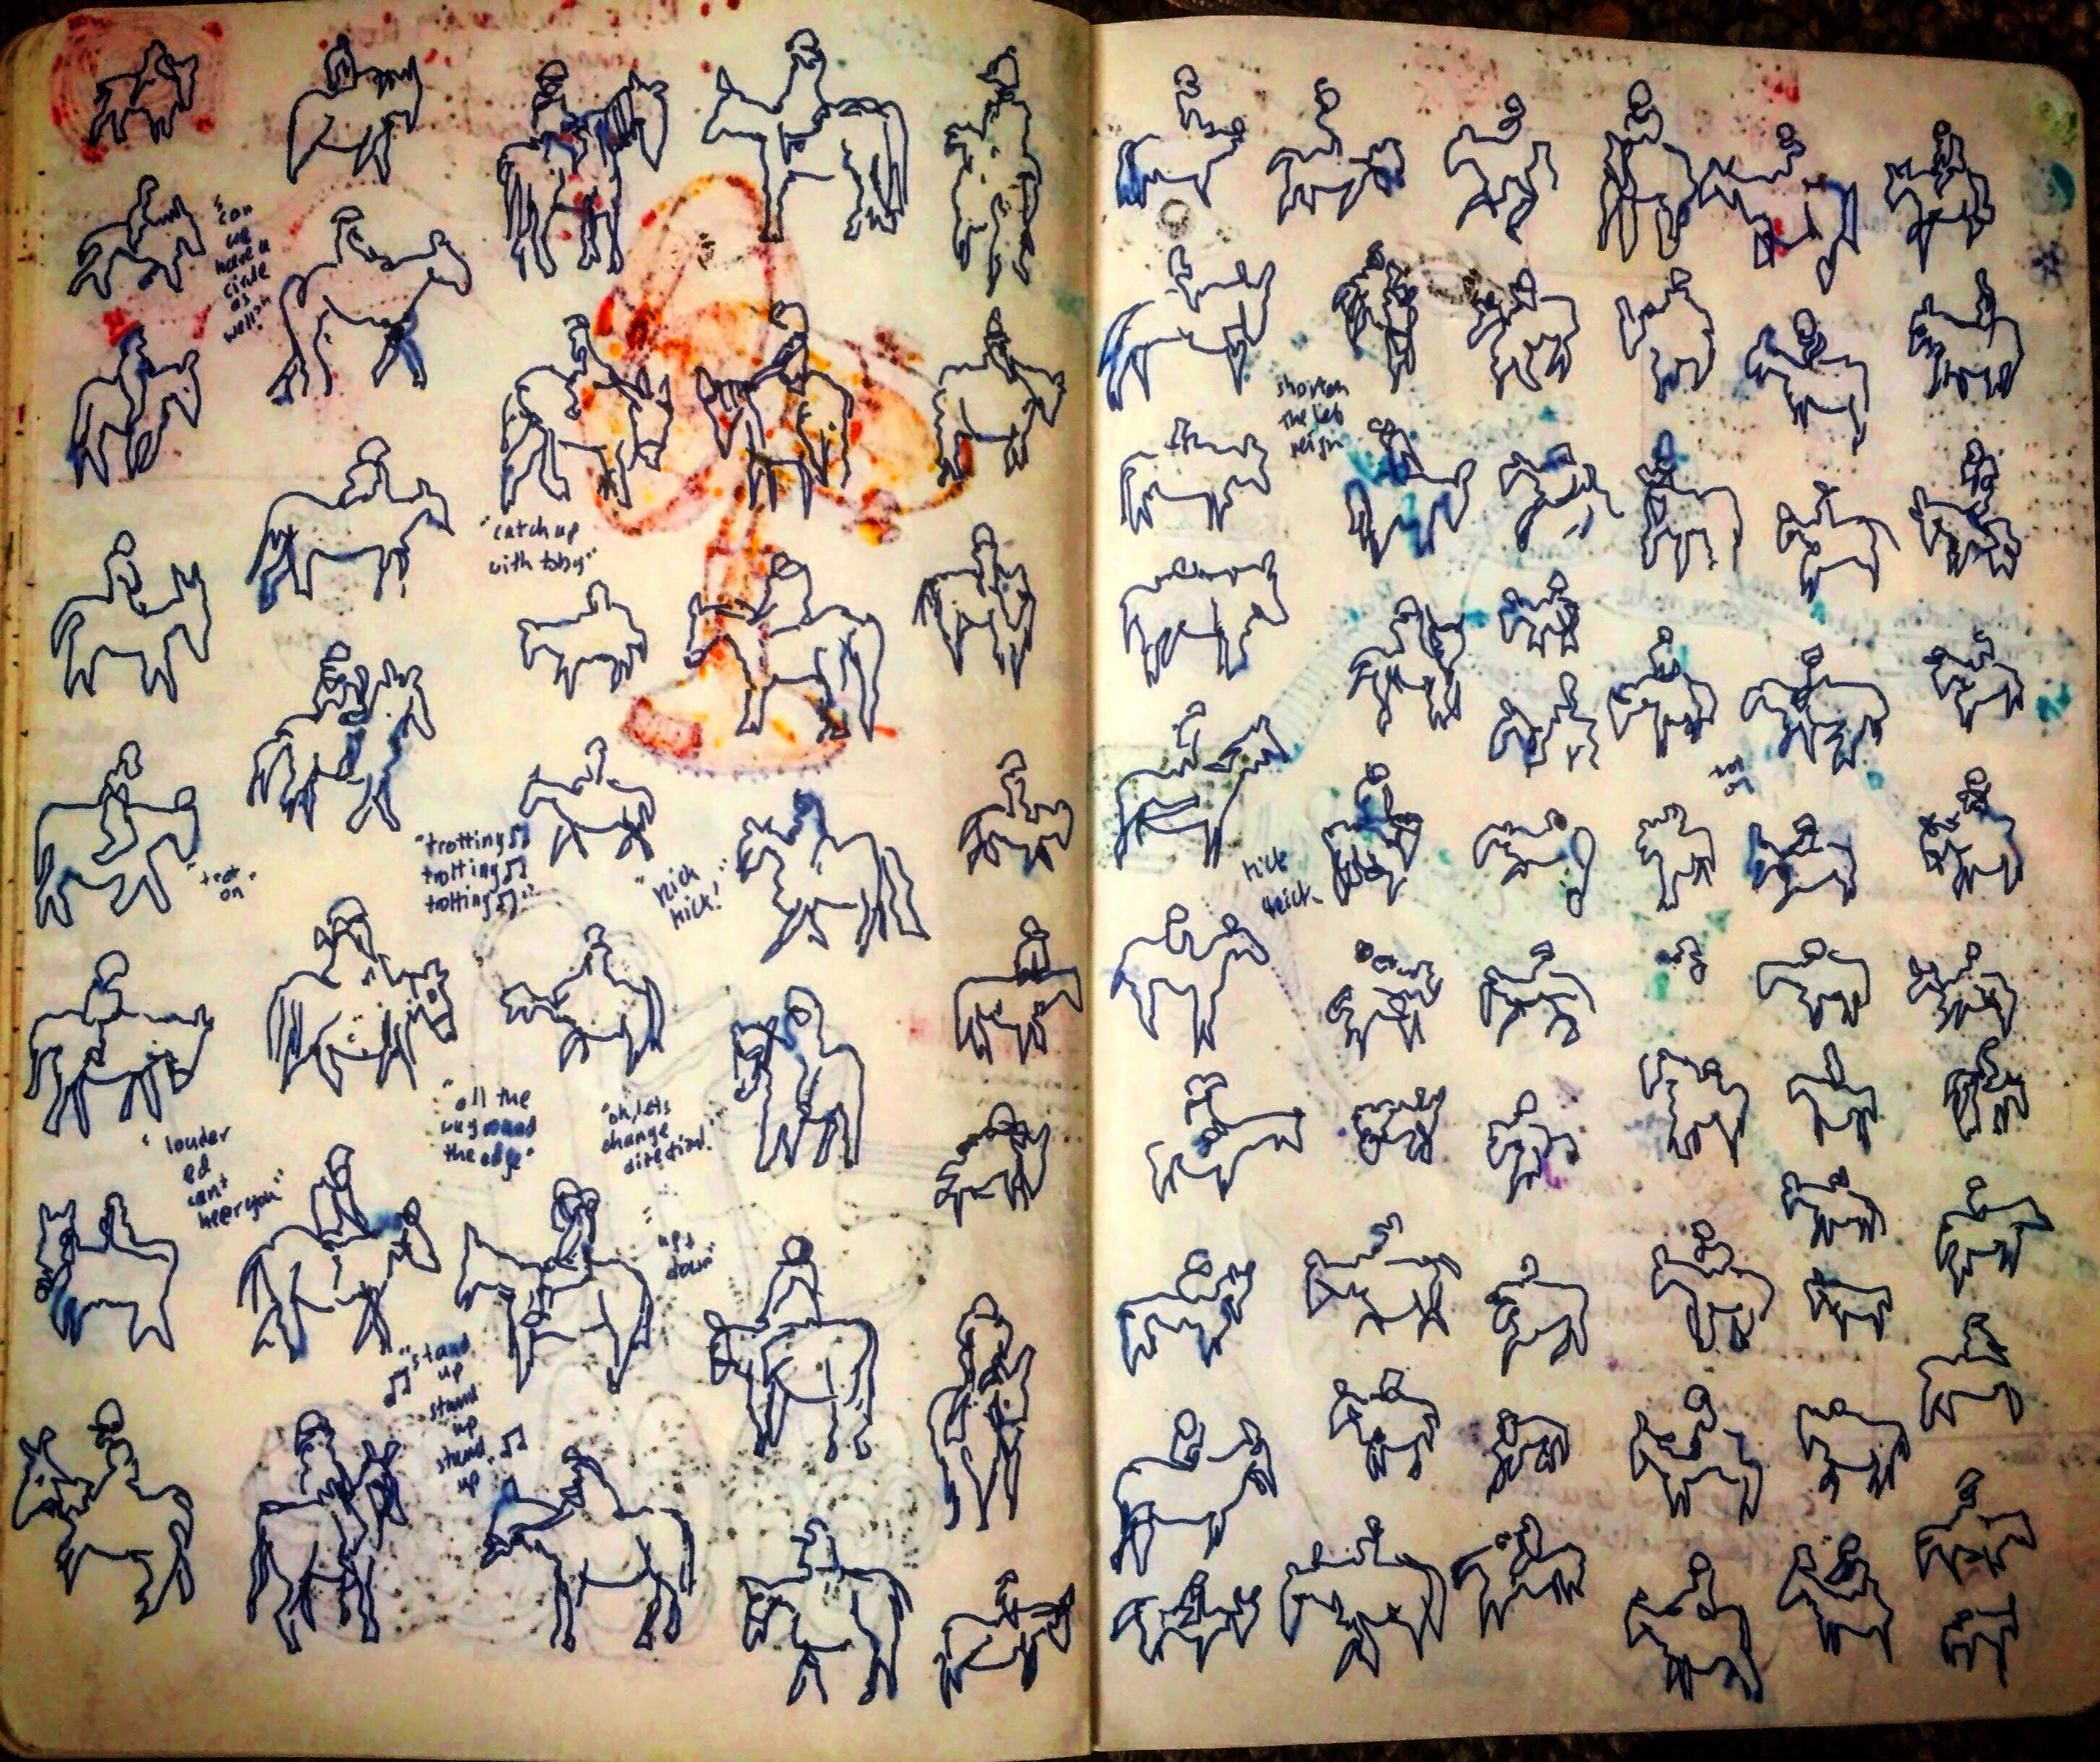 "can
we
have a
circle
as
well?"
"catch up
with toby"
"trot
on"
"trotting♫
trotting♫
trotting♫"
"kick
kick!"
"all the
way round
the edge"
"oh, lets
change
direction!"
"louder
ed
cant
heer you"
"up &
down"
♫"stand
up
stand
up
stand
up"♫
shorten
the
reign
kick
kick